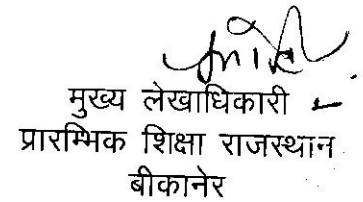 मुख्य लेखाधिकारी
प्रारम्भिक शिक्षा राजस्थान
बीकानेर